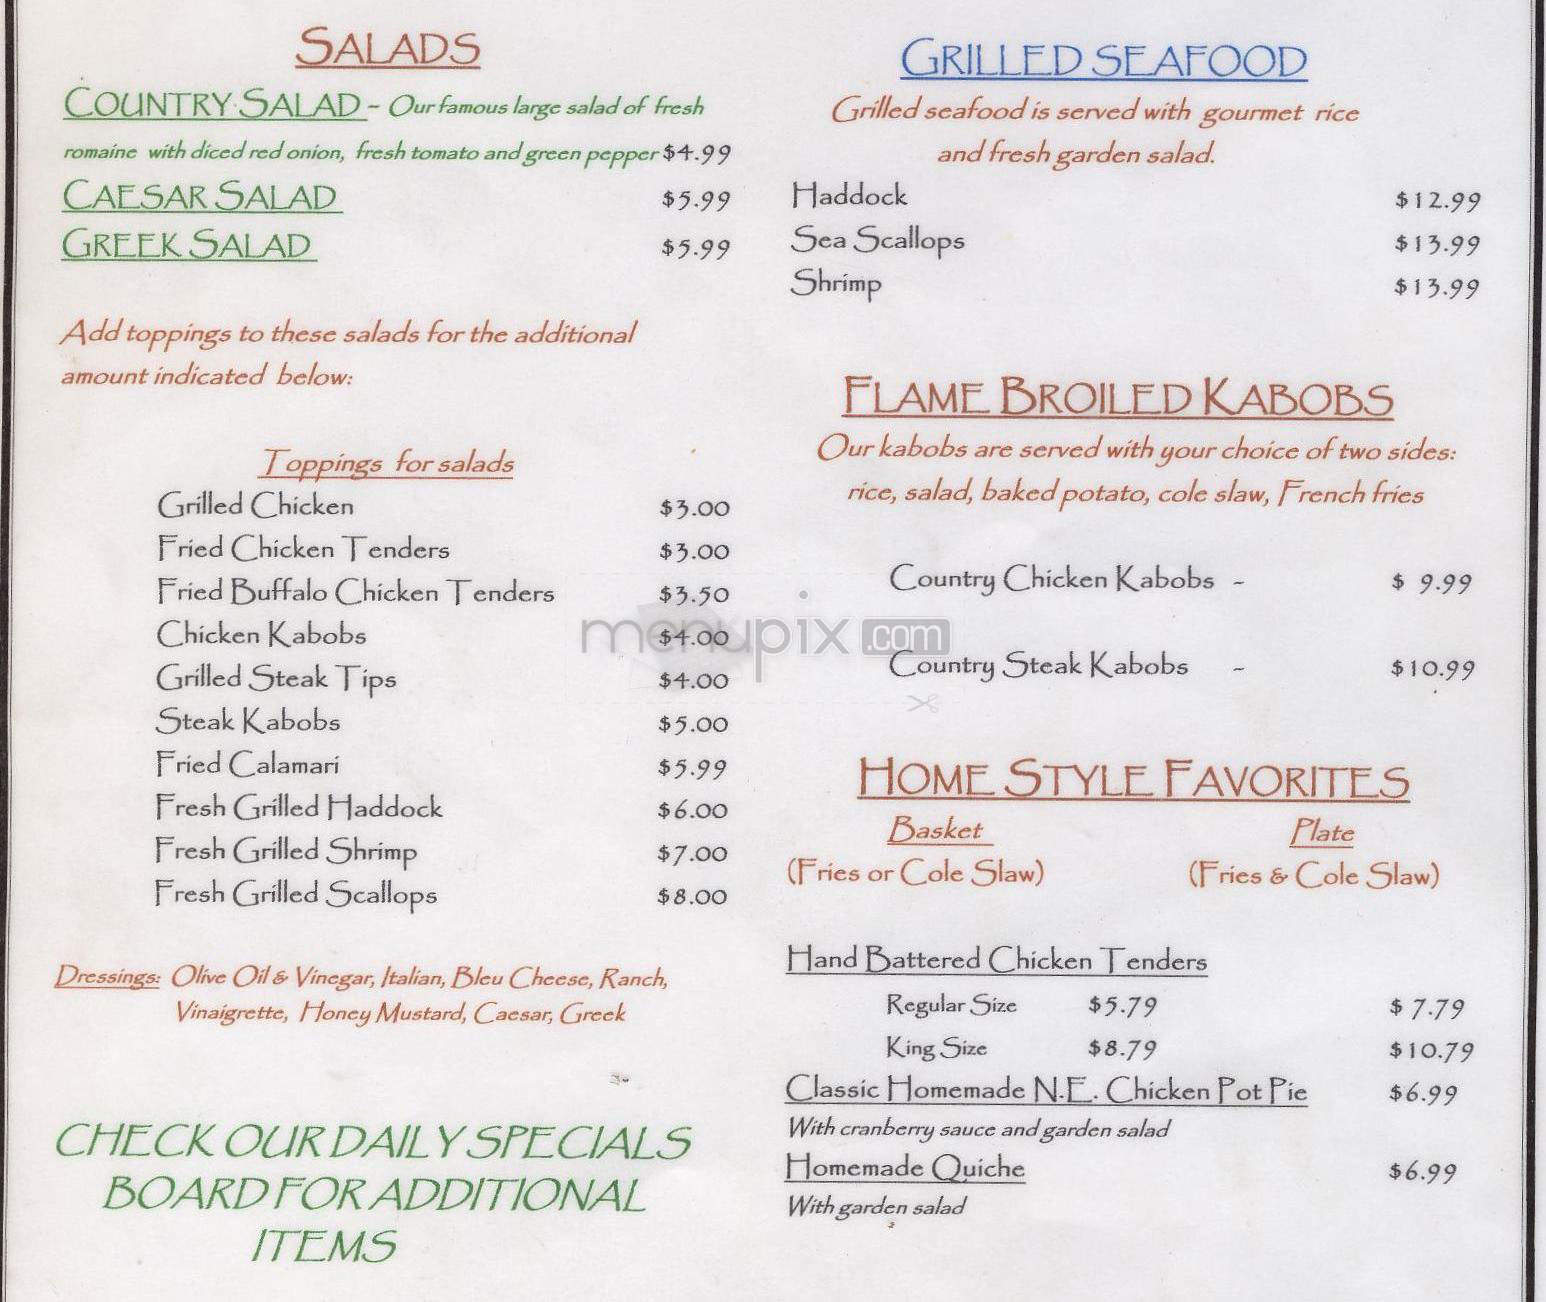 SALADS
COUNTRY SALAD - Our famous large salad of fresh
romaine with diced red onion, fresh tomato and green pepper $4.99
CAESAR SALAD $5.99
GREEK SALAD $5.99
Add toppings to these salads for the additional
amount indicated below:
Toppings for salads
Grilled Chicken $3.00
Fried Chicken Tenders $3.00
Fried Buffalo Chicken Tenders $3.50
Chicken Kabobs $4.00
Grilled Steak Tips $4.00
Steak Kabobs $5.00
Fried Calamari $5.99
Fresh Grilled Haddock $6.00
Fresh Grilled Shrimp $7.00
Fresh Grilled Scallops $8.00
Dressings: Olive Oil & Vinegar, Italian, Bleu Cheese, Ranch,
Vinaigrette, Honey Mustard, Caesar, Greek
CHECK OUR DAILY SPECIALS
BOARD FOR ADDITIONAL
ITEMS
GRILLED SEAFOOD
Grilled seafood is served with gourmet rice
and fresh garden salad.
Haddock $12.99
Sea Scallops $13.99
Shrimp $13.99
FLAME BROILED KABOBS
Our kabobs are served with your choice of two sides:
rice, salad, baked potato, cole slaw, French fries
Country Chicken Kabobs - $ 9.99
Country Steak Kabobs - $10.99
HOME STYLE FAVORITES
Basket Plate
(Fries or Cole Slaw) (Fries & Cole Slaw)
Hand Battered Chicken Tenders
Regular Size $5.79 $ 7.79
King Size $8.79 $10.79
Classic Homemade N.E. Chicken Pot Pie $6.99
With cranberry sauce and garden salad
Homemade Quiche $6.99
With garden salad
menupix.com